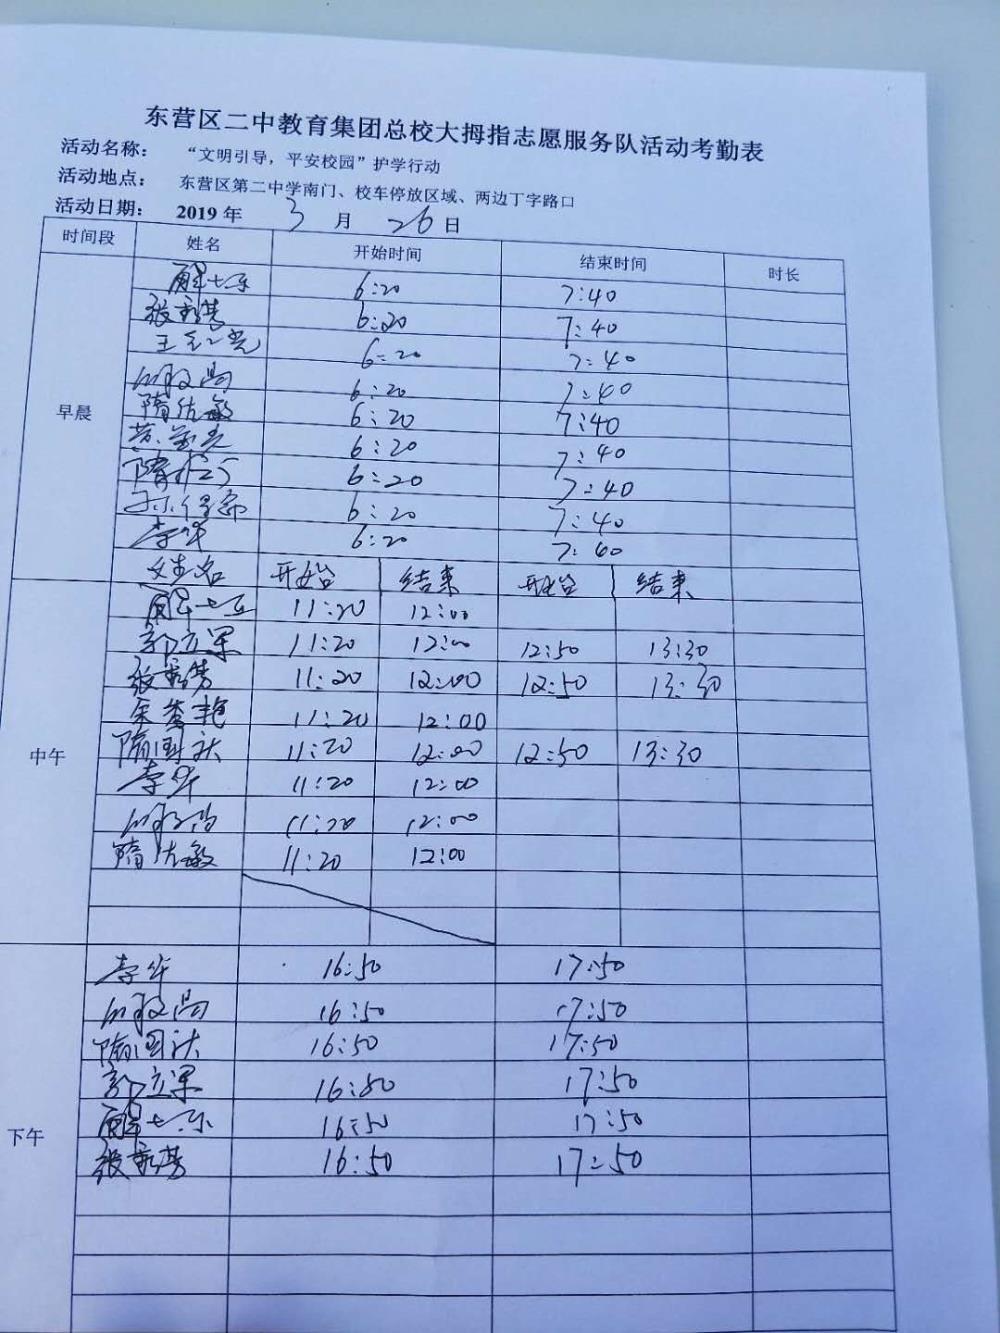 东营区二中教育集团总校大拇指志愿服务队活动考勤表
活动名称： “文明引导，平安校园”护学行动
活动地点： 东营区第二中学南门、校车停放区域、两边丁字路口
活动日期： 2019 年 3 月 26 日
时间段 姓名 开始时间 结束时间 时长
早晨
6:20 7:40
6:20 7:40
6:20 7:40
6:20 7:40
隋佐敏 6:20 7:40
6:20 7:40
6:20 7:40
6:20 7:40
李华 6:20 7:40
姓名 开始 结束 开始 结束
中午
11:20 12:00
郭立军 11:20 12:00 12:50 13:30
11:20 12:00 12:50 13:30
11:20 12:00
隋国 11:20 12:00 12:50 13:30
李华 11:20 12:00
11:20 12:00
隋佐敏 11:20 12:00
下午
李华 16:50 17:50
16:50 17:50
隋国 16:50 17:50
郭立军 16:50 17:50
16:50 17:50
16:50 17:50